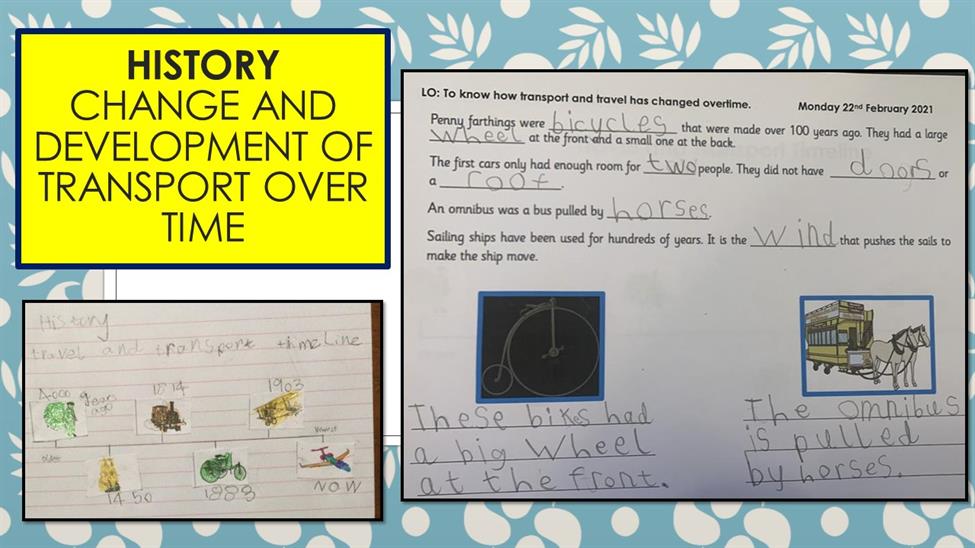 HISTORY
CHANGE AND
DEVELOPMENT OF
TRANSPORT OVER
TIME
LO: To know how transport and travel has changed overtime.
Monday 22nd February 2021
Penny farthings were bicycles that were made over 100 years ago. They had a large
wheel at the front and a small one at the back.
The first cars only had enough room for two people. They did not have doors or
a roof.
An omnibus was a bus pulled by horses.
Sailing ships have been used for hundreds of years. It is the wind that pushes the sails to
make the ship move.
These bikes had
a big wheel
at the front.
The omnibus
is pulled
by horses.
History
travel and transport timeline
4000 years
ago
1814
1903
oldest
newest
1450
1888
NOW